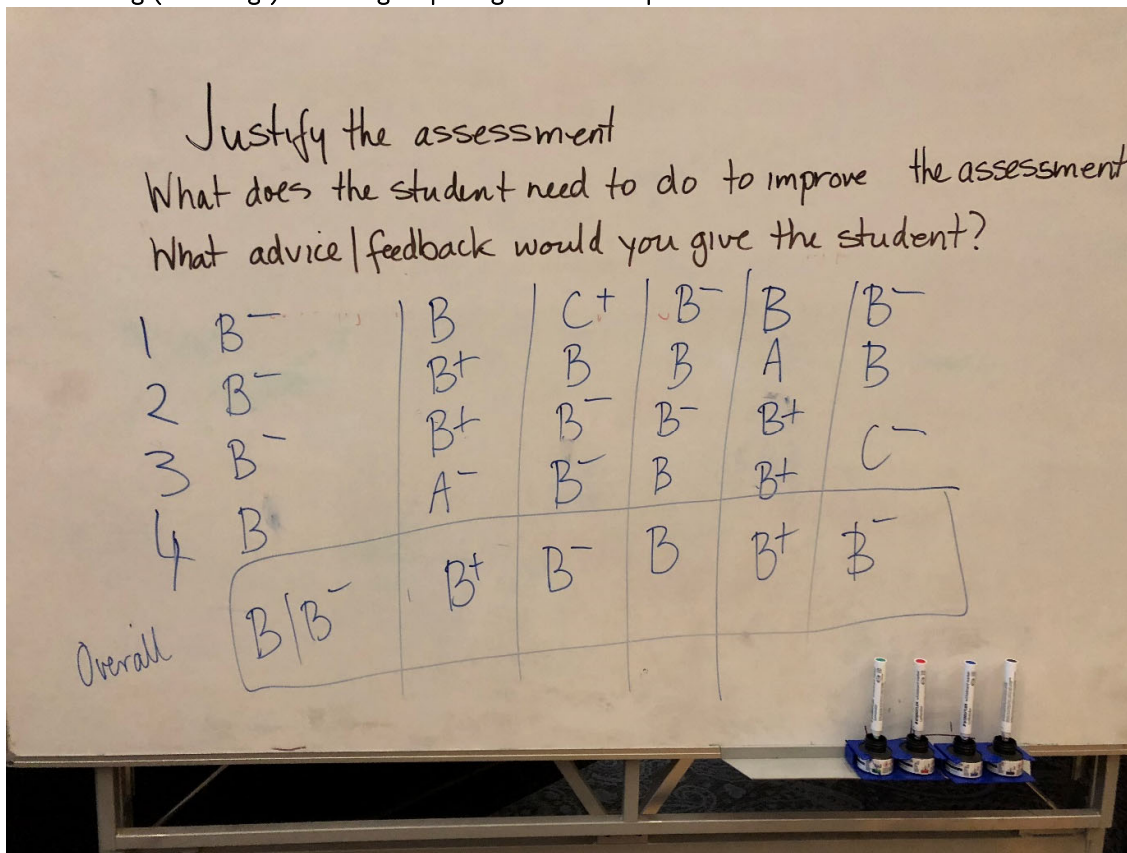 Justify the assessment
What does the student need to do to improve the assessment
What advice/feedback would you give the student?
1 B- B C+ B- B B-
2 B- B+ B B A B
3 B- B+ B- B- B+ C-
4 B A- B- B B+
Overall B/B- B+ B- B B+ B-